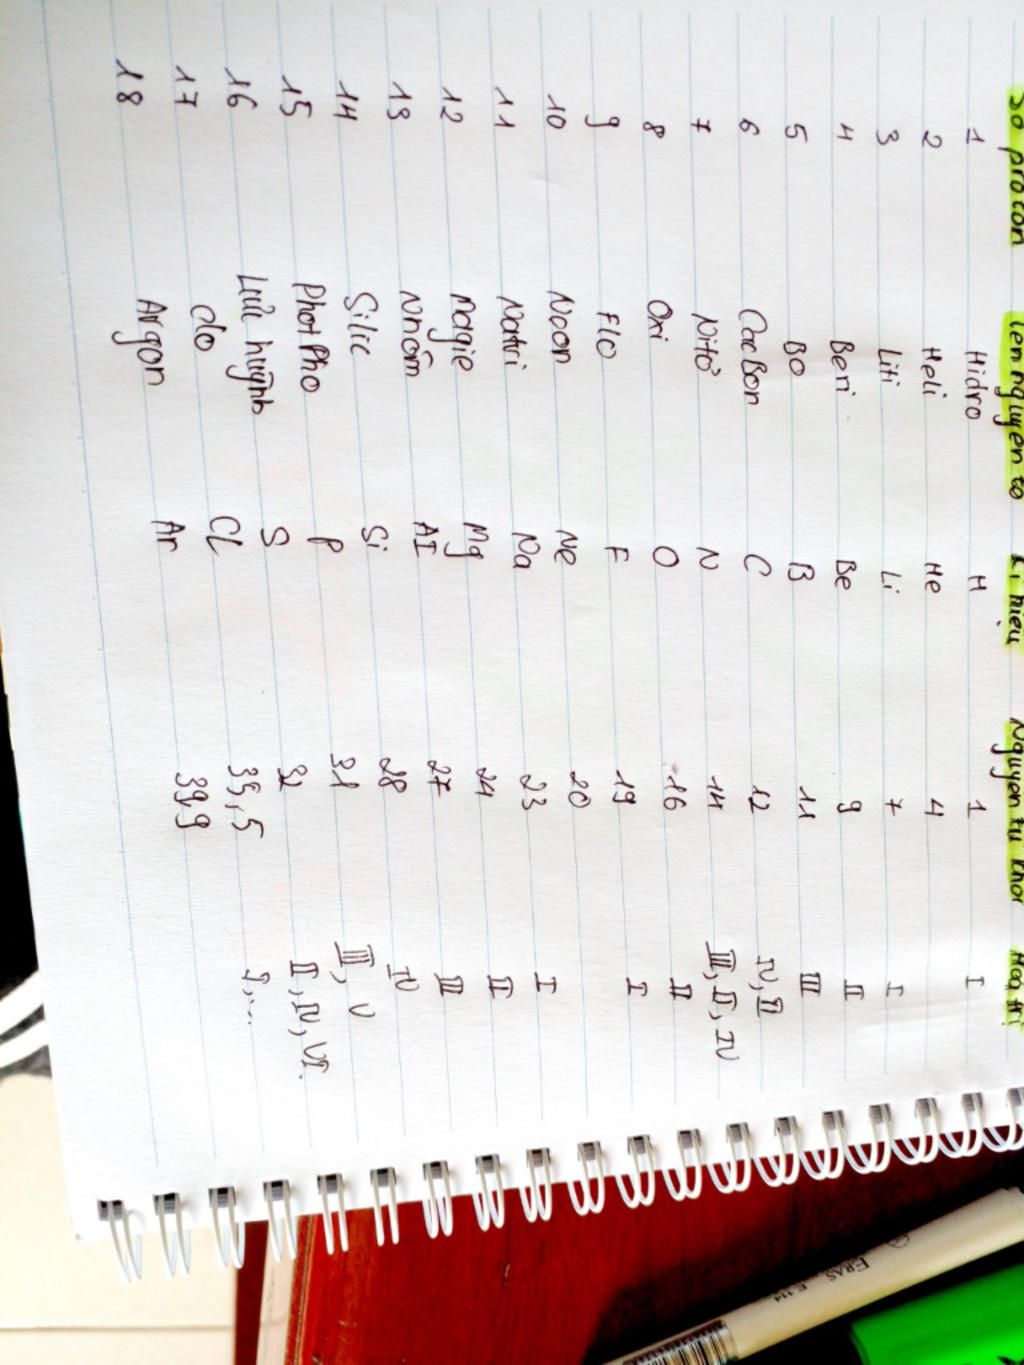 Số proton Tên nguyên tố Kí hiệu Nguyên tử khối Hoá trị
1 Hidro H 1 I
2 Heli He 4
3 Liti Li 7 I
4 Beri Be 9 II
5 Bo B 11 III
6 CacBon C 12 IV, II
7 Nitơ N 14 III, II, IV
8 Oxi O 16 II
9 Flo F 19 I
10 Neon Ne 20
11 Natri Na 23 I
12 Magie Mg 24 II
13 Nhôm Al 27 III
14 Silic Si 28 IV
15 PhotPho P 31 III, V
16 Lưu huỳnh S 32 II, IV, VI.
17 Clo Cl 35,5 I,...
18 Argon Ar 39,9
ERAS